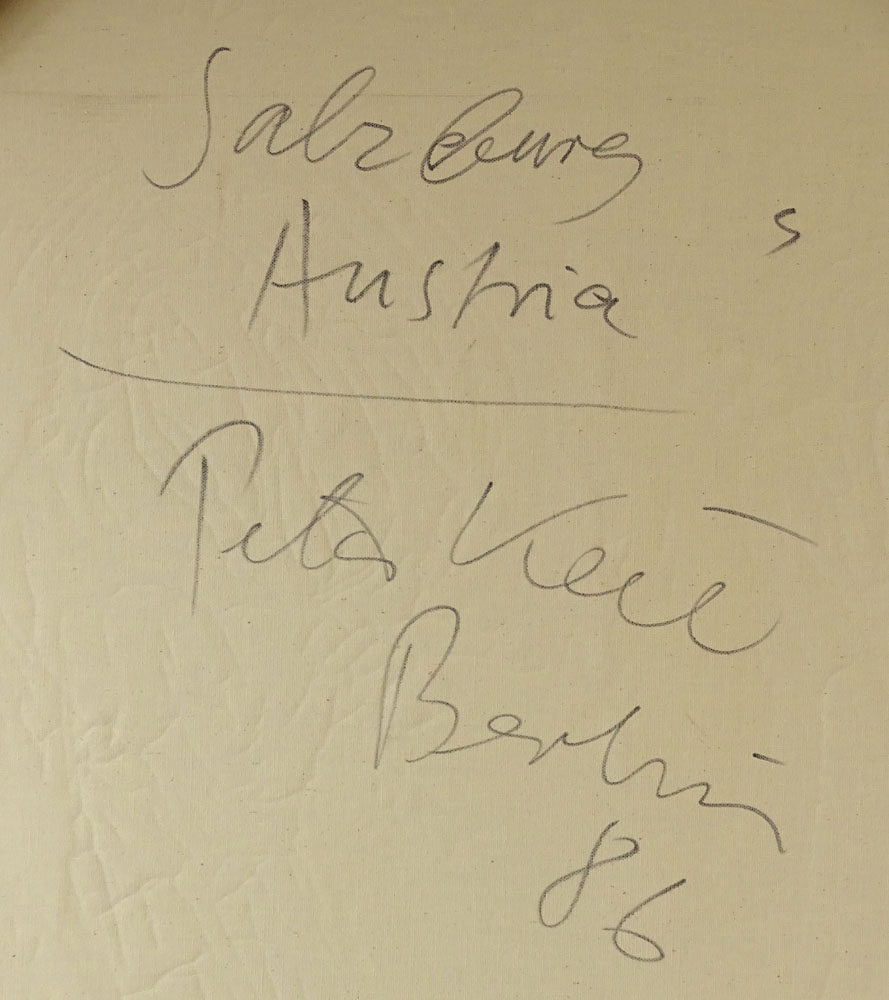 Salzburg
s
Austria
Peter
Berlin
86